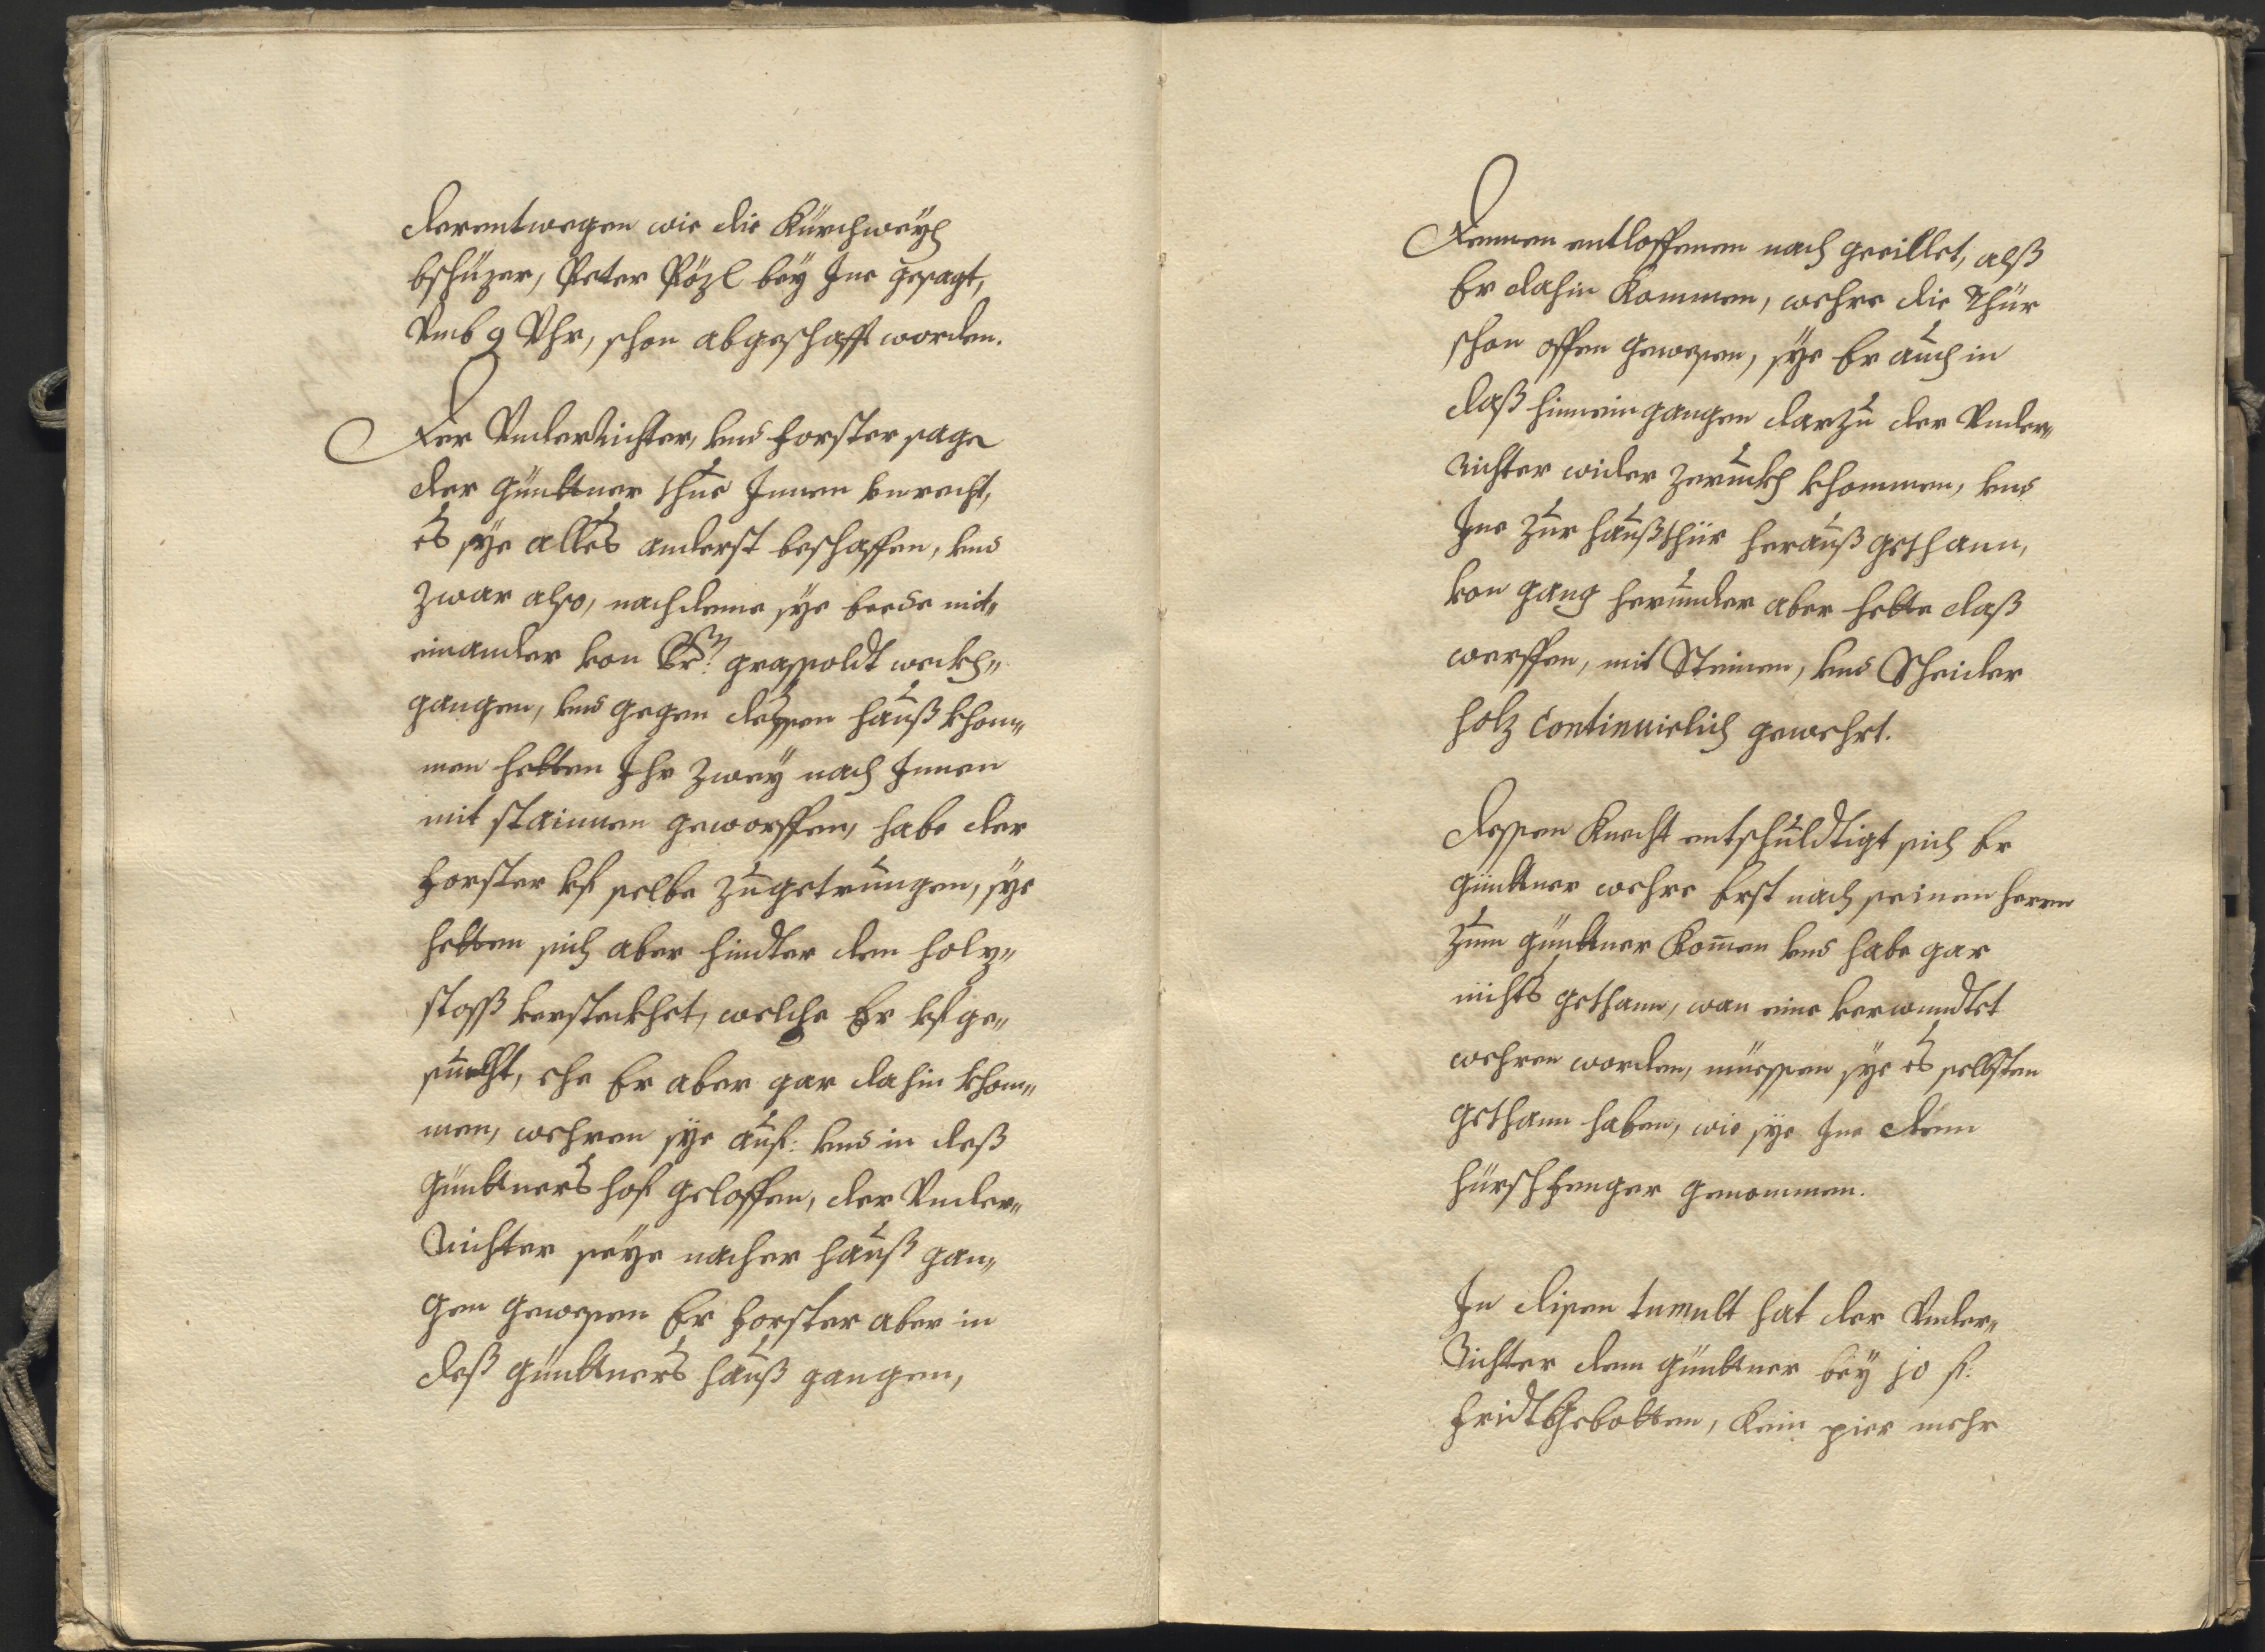 derentwegen wie die Kürchweÿh
bschüzer, Peter Pözl beÿ Ine gesagt,
Vmb 9 Vhr, schon abgeschafft worden.
Der VnderRichter, vnd Forster sage
der Günttner thue Innen vnrecht,
es sÿe alles anderst beschaffen, vnd
zwar also, nachdeme sÿe beede mit„
einander von Graspoldt weckh„
gangen, vnd gegen dessen hauß khom„
men hetten Ihr zweÿ nach Innen
mit stainnen geworffen, habe der
Forster vf selbe zugetrungen, sÿe
hetten sich aber hindter den holz„
stoss versteckhet, welche Er vf ge„
suecht, ehe Er aber gar dahin khom„
men, wehren sÿe auf: vnd in deß
Günttners hof geloffen, der Vnder„
Richter seÿe nacher hauß gan„
gen gewesen Er Forster aber in
deß Günttners hauß gangen,
Dennen entloffenen nach geeillet, alß
Er dahin Kommen, wehre die Thür
schon offen gewesen, sÿe Er auch in
daß hinnein gangen darzu der Vnder„
Richter wider zeruckh khommen, vnd
Ine zur haußthür herauß gethann,
von gang herunder aber hette daß
werffen, mit Steinen, vnd Scheider
holz Continuirlich gewehrt.
dessen Knecht entschuldtigt sich Er
Günttner wehre Erst nach seinen herrn
zum Günttner Komen vnd habe gar
nichts gethann, wan eine verwundtet
wehren worden, müessen sÿe es selbsten
gethann haben, wie sÿe Ine denn
hürschfenger genommen.
In disen tumult hat der Vnder„
Richter dem Günttner beÿ 10 f:
fridtGebotten, Kein pier mehr